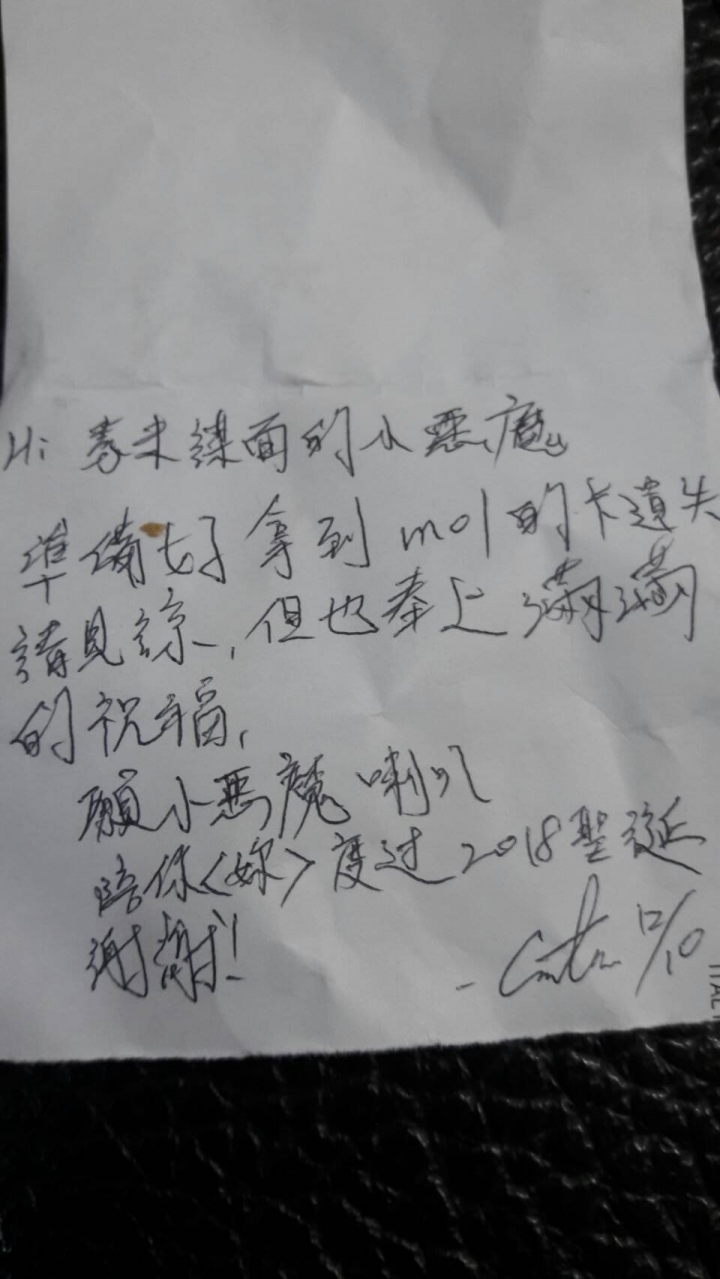 Hi 素未謀面的小惡魔
準備好拿到mo1的卡遺失
請見諒,但也奉上滿滿
的祝福,
願小惡魔喇叭
陪你<妳>度过2018聖誕
謝謝!
- 12/10